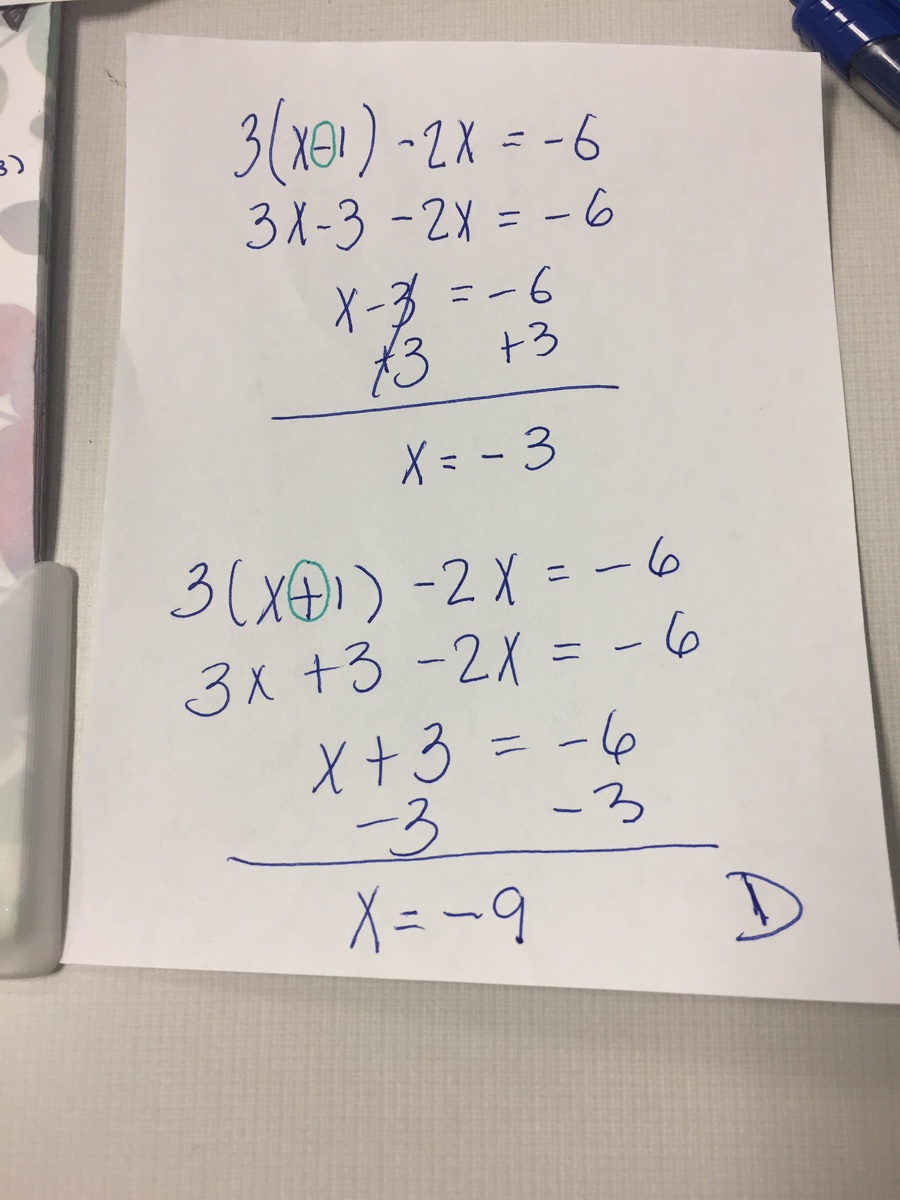 3(x-1) -2x = -6
3x-3 -2x = -6
x-3 = -6
+3 +3
x = -3
3(x+1) -2x = -6
3x +3 -2x = -6
x+3 = -6
-3 -3
x = -9
D
3)